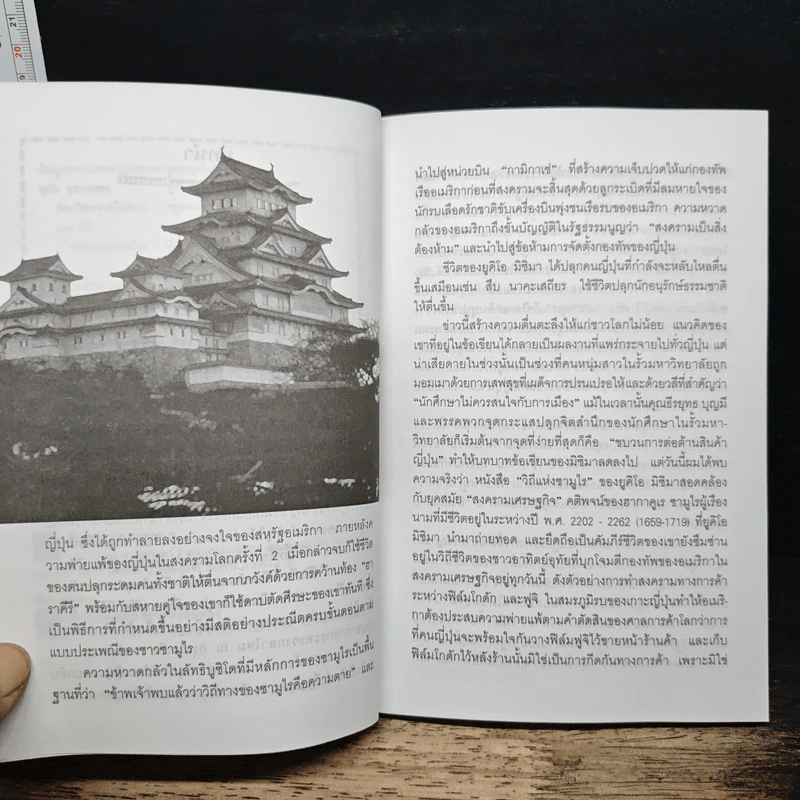 ญี่ปุ่น ซึ่งได้ถูกทำลายลงอย่างจงใจของสหรัฐอเมริกา ภายหลังค
วามพ่ายแพ้ของญี่ปุ่นในสงครามโลกครั้งที่ 2 เมื่อกล่าวจบก็ใช้ชีวิต
ของตนปลุกระดมคนทั้งชาติให้ตื่นจากภวังค์ด้วยการคว้านท้อง "ฮา
ราคีรี" พร้อมกับสหายคู่ใจของเขาก็ใช้ดาบตัดศีรษะของเขาทันที ซึ่ง
เป็นพิธีการที่กำหนดขึ้นอย่างมีสติอย่างประณีตครบขั้นตอนตาม
แบบประเพณีของชาวซามูไร
ความหวาดกลัวในลัทธิบูชิโดที่มีหลักการของซามูไรเป็นพื้น
ฐานที่ว่า "ข้าพเจ้าพบแล้วว่าวิถีทางของซามูไรคือความตาย" และ
นำไปสู่หน่วยบิน "กามิกาเซ่" ที่สร้างความเจ็บปวดให้แก่กองทัพ
เรืออเมริกาก่อนที่สงครามจะสิ้นสุดด้วยลูกระเบิดที่มีลมหายใจของ
นักรบเลือดรักชาติขับเครื่องบินพุ่งชนเรือรบของอเมริกา ความหวาด
กลัวของอเมริกาถึงขั้นบัญญัติในรัฐธรรมนูญว่า "สงครามเป็นสิ่ง
ต้องห้าม" และนำไปสู่ข้อห้ามการจัดตั้งกองทัพของญี่ปุ่น
ชีวิตของยูคิโอ มิชิมา ได้ปลุกคนญี่ปุ่นที่กำลังจะหลับไหลตื่น
ขึ้นเสมือนเช่น สืบ นาคะเสถียร ใช้ชีวิตปลุกนักอนุรักษ์ธรรมชาติ
ให้ตื่นขึ้น
ข่าวนี้สร้างความตื่นตะลึงให้แก่ชาวโลกไม่น้อย แนวคิดของ
เขาที่อยู่ในข้อเขียนได้กลายเป็นผลงานที่แพร่กระจายไปทั่วญี่ปุ่น แต่
น่าเสียดายในช่วงนั้นเป็นช่วงที่คนหนุ่มสาวในรั้วมหาวิทยาลัยถูก
มอมเมาด้วยการเสพสุขที่เผด็จการปรนเปรอให้และด้วยวลีที่สำคัญว่า
"นักศึกษาไม่ควรสนใจกับการเมือง" แม้ในเวลานั้นคุณธีรยุทธ บุญมี
และพรรคพวกจุดกระแสปลุกจิตสำนึกของนักศึกษาในรั้วมหา-
วิทยาลัยก็เริ่มต้นจากจุดที่ง่ายที่สุดก็คือ "ขบวนการต่อต้านสินค้า
ญี่ปุ่น" ทำให้บทบาทข้อเขียนของมิชิมาลดลงไป แต่วันนี้ผมได้พบ
ความจริงว่า หนังสือ "วิถีแห่งซามูไร" ของยูคิโอ มิชิมาสอดคล้อง
กับยุคสมัย "สงครามเศรษฐกิจ" คติพจน์ของฮากาคูเร ซามูไรผู้เรือง
นามที่มีชีวิตอยู่ในระหว่างปี พ.ศ. 2202 - 2262 (1659-1719) ที่ยูคิโอ
มิชิมา นำมาถ่ายทอด และยึดถือเป็นคัมภีร์ชีวิตของเขายังซึมซ่าน
อยู่ในวิถีชีวิตของชาวอาทิตย์อุทัยที่บุกโจมตีกองทัพของอเมริกาใน
สงครามเศรษฐกิจอยู่ทุกวันนี้ ดังตัวอย่างการทำสงครามทางการค้า
ระหว่างฟิล์มโกดัก และฟูจิ ในสมรภูมิรบของเกาะญี่ปุ่นทำให้อเมริ-
กาต้องประสบความพ่ายแพ้ตามคำตัดสินของศาลการค้าโลกว่าการ
ที่คนญี่ปุ่นจะพร้อมใจกันวางฟิล์มฟูจิไว้ขายหน้าร้านค้า และเก็บ
ฟิล์มโกดักไว้หลังร้านนั้นมิใช่เป็นการกีดกันทางการค้า เพราะมิใช่